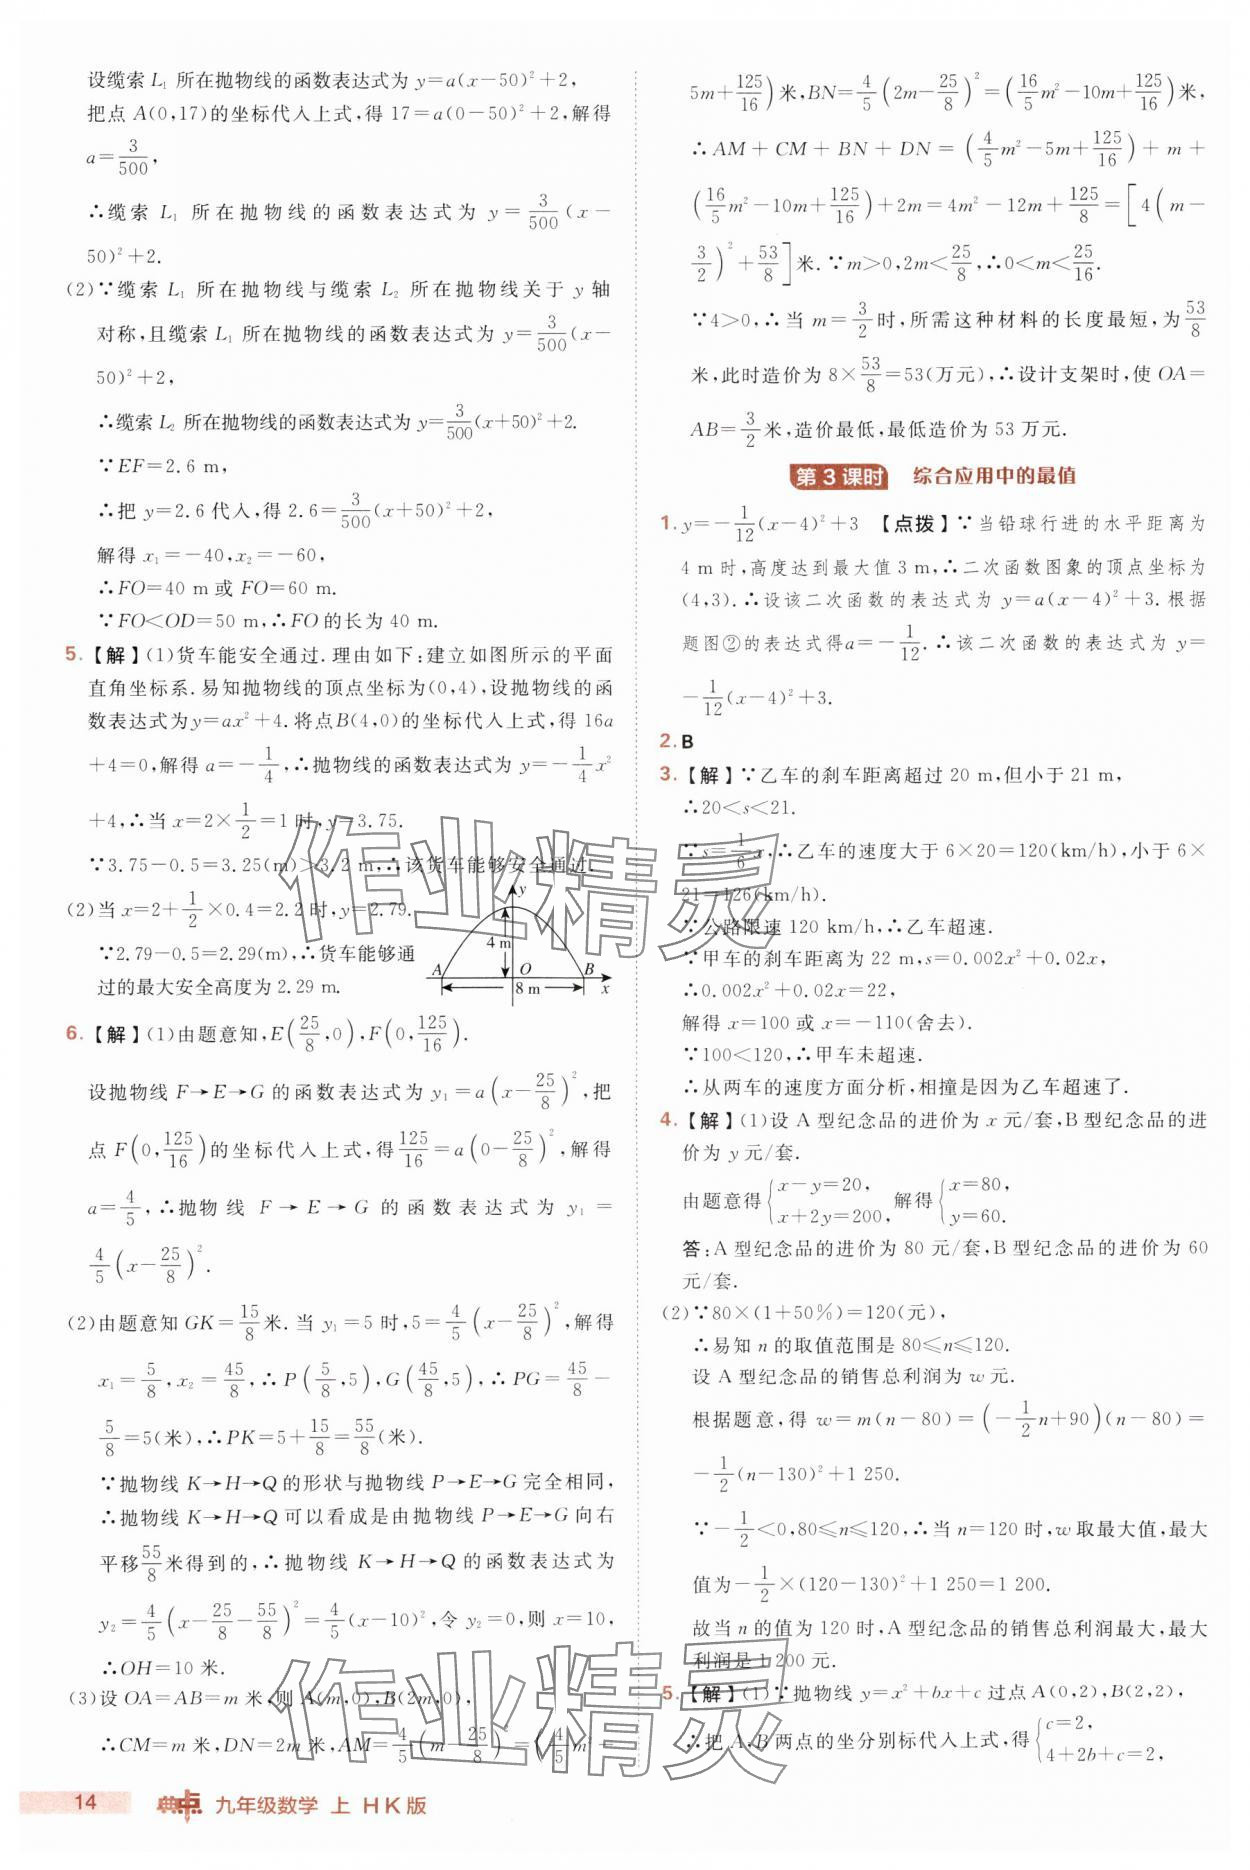 设缆索 L₁ 所在抛物线的函数表达式为 y=a(x-50)²+2,
把点 A(0,17)的坐标代入上式,得 17=a(0-50)²+2,解得
a=3/500,
∴缆索 L₁ 所在抛物线的函数表达式为 y=3/500(x-
50)²+2.
(2)∵缆索 L₁ 所在抛物线与缆索 L₂ 所在抛物线关于 y 轴
对称,且缆索 L₁ 所在抛物线的函数表达式为 y=3/500(x-
50)²+2,
∴缆索 L₂ 所在抛物线的函数表达式为 y=3/500(x+50)²+2.
∵EF=2.6 m,
∴把 y=2.6 代入,得 2.6=3/500(x+50)²+2,
解得 x₁=-40,x₂=-60,
∴FO=40 m 或 FO=60 m.
∵FO<OD=50 m,∴FO 的长为 40 m.
5.【解】(1)货车能安全通过.理由如下:建立如图所示的平面
直角坐标系.易知抛物线的顶点坐标为(0,4),设抛物线的函
数表达式为y=ax²+4.将点B(4,0)的坐标代入上式,得 16a
+4=0,解得 a=-1/4,∴抛物线的函数表达式为 y=-1/4x²
+4,∴当 x=2×1/2=1 时,y=3.75.
∵3.75-0.5=3.25(m)>3.2 m,∴该货车能够安全通过.
(2)当 x=2+1/2×0.4=2.2 时,y=2.79.
∵2.79-0.5=2.29(m),∴货车能够通
过的最大安全高度为 2.29 m.
y
4 m
A O B
8 m x
6.【解】(1)由题意知,E(25/8,0),F(0,125/16).
设抛物线 F→E→G 的函数表达式为 y₁=a(x-25/8)²,把
点 F(0,125/16)的坐标代入上式,得125/16=a(0-25/8)²,解得
a=4/5,∴抛物线 F→E→G 的函数表达式为 y₁=
4/5(x-25/8)².
(2)由题意知 GK=15/8米.当 y₁=5 时,5=4/5(x-25/8)²,解得
x₁=5/8,x₂=45/8,∴P(5/8,5),G(45/8,5),∴PG=45/8-
5/8=5(米),∴PK=5+15/8=55/8(米).
∵抛物线 K→H→Q 的形状与抛物线 P→E→G 完全相同,
∴抛物线 K→H→Q 可以看成是由抛物线 P→E→G 向右
平移55/8米得到的,∴抛物线 K→H→Q 的函数表达式为
y₂=4/5(x-25/8-55/8)²=4/5(x-10)²,令 y₂=0,则 x=10,
∴OH=10 米.
(3)设 OA=AB=m 米,则 A(m,0),B(2m,0),
∴CM=m 米,DN=2m 米,AM=4/5(m-25/8)²=(4/5m²-
14 典点 九年级数学 上 HK版
5m+125/16)米,BN=4/5(2m-25/8)²=(16/5m²-10m+125/16)米,
∴AM+CM+BN+DN=(4/5m²-5m+125/16)+m+
(16/5m²-10m+125/16)+2m=4m²-12m+125/8=[4(m-
3/2)²+53/8]米.∵m>0,2m<25/8,∴0<m<25/16.
∵4>0,∴当 m=3/2时,所需这种材料的长度最短,为53/8
米,此时造价为 8×53/8=53(万元),∴设计支架时,使 OA=
AB=3/2米,造价最低,最低造价为 53 万元.
第3课时 综合应用中的最值
1. y=-1/12(x-4)²+3 【点拨】∵当铅球行进的水平距离为
4 m时,高度达到最大值 3 m,∴二次函数图象的顶点坐标为
(4,3).∴设该二次函数的表达式为 y=a(x-4)²+3.根据
题图②的表达式得a=-1/12.∴该二次函数的表达式为 y=
-1/12(x-4)²+3.
2. B
3.【解】∵乙车的刹车距离超过 20 m,但小于 21 m,
∴20<s<21.
∵s=1/6x,∴乙车的速度大于 6×20=120(km/h),小于 6×
21=126(km/h).
∵公路限速 120 km/h,∴乙车超速.
∵甲车的刹车距离为 22 m,s=0.002x²+0.02x,
∴0.002x²+0.02x=22,
解得 x=100 或 x=-110(舍去).
∵100<120,∴甲车未超速.
∴从两车的速度方面分析,相撞是因为乙车超速了.
4.【解】(1)设 A 型纪念品的进价为 x 元/套,B 型纪念品的进
价为 y 元/套.
由题意得{x-y=20, x+2y=200, 解得{x=80, y=60.
答:A 型纪念品的进价为 80 元/套,B 型纪念品的进价为 60
元/套.
(2)∵80×(1+50%)=120(元),
∴易知 n 的取值范围是 80≤n≤120.
设 A 型纪念品的销售总利润为 w 元.
根据题意,得 w=m(n-80)=(-1/2n+90)(n-80)=
-1/2(n-130)²+1 250.
∵-1/2<0,80≤n≤120,∴当 n=120 时,w 取最大值,最大
值为-1/2×(120-130)²+1 250=1 200.
故当 n 的值为 120 时,A 型纪念品的销售总利润最大,最大
利润是 1 200 元.
5.【解】(1)∵抛物线 y=x²+bx+c 过点 A(0,2),B(2,2),
∴把 A,B 两点的坐分别标代入上式,得{c=2, 4+2b+c=2,
作业精灵
作业精灵